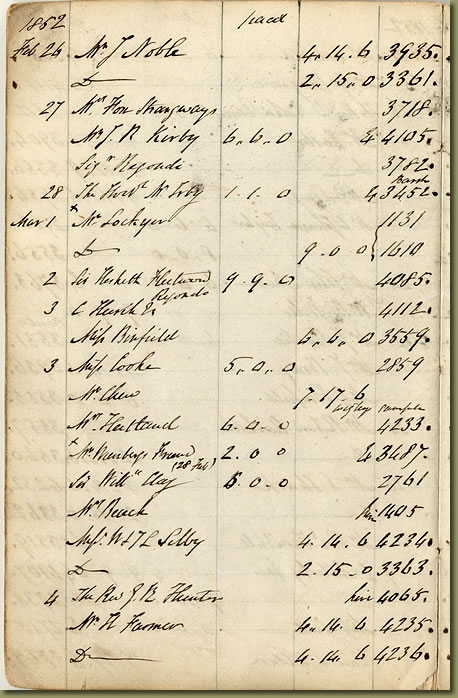 1852 paed
Feb 26 Mr J Noble 4.14.6 3935.
D— 2.15.0 3361.
27 Mrs Fox Strangways 3718.
Mr J. R Kirby 6..6..0 & 4105.
Sigr Regondi 3782.
28 The Honble Mr Irby 1.1.0 & 3452.
Mar 1 × Mr Lockyer 1131
D— 9.0.0 { 1610
2 Sir Hesketh Fleetwood 9.9.0 4085.
Regondi
3 4112.
Miss Binfield 6..6..0 3559.
3 Miss Cooke 5.0.0 2859
Mr Chew 7.17.6
6 .0..0 4233.
× 2.0 0 & 3487.
(28 Feb)
Sir Willm Clay 6.0.0 2761
Mrs Beack hire 1405
Miss. W & L Selby 4.14.6 4234.
D— 2.15.0 3363.
4 The Rev hire 4065.
Mr H Farmer 4.14.6 4235.
D— 4.14.6 4236.